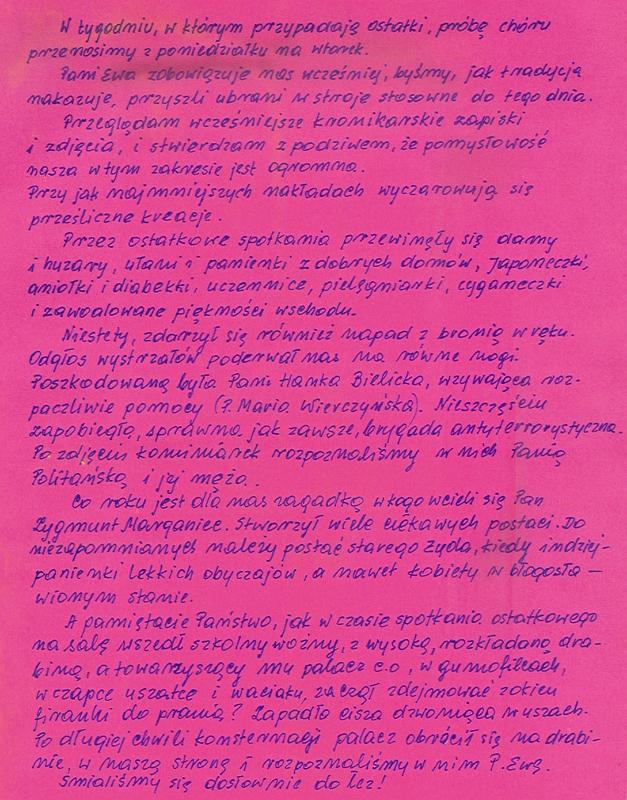 W tygodniu, w którym przypadają ostatki, próbę chóru
przenosimy z poniedziałku na wtorek.
Pani Ewa zobowiązuje nas wcześniej, byśmy, jak tradycja
nakazuje, przyszli ubrani w stroje stosowne do tego dnia.
Przeglądam wcześniejsze kronikarskie zapiski
i zdjęcia, i stwierdzam z podziwem, że pomysłowość
nasza w tym zakresie jest ogromna.
Przy jak najmniejszych nakładach wyczarowują się
prześliczne kreacje.
Przez ostatkowe spotkania przewinęły się damy
i huzary, ułani i panienki z dobrych domów, Japoneczki,
aniołki i diabełki, uczennice, pielęgniarki, cyganeczki
i zawoalowane piękności wschodu.
Niestety, zdarzył się również napad z bronią w ręku.
Odgłos wystrzałów poderwał nas na równe nogi.
Poszkodowaną była Pani Hanka Bielicka, wzywająca roz-
paczliwie pomocy (P. Maria Wierczyńska). Nieszczęściu
zapobiegła, sprawna jak zawsze, brygada antyterrorystyczna.
Po zdjęciu kominiarek rozpoznaliśmy w nich Panią
Politańską i jej męża..
Co roku jest dla nas zagadką w kogo wcieli się Pan
Zygmunt Marganiec. Stworzył wiele ciekawych postaci. Do
niezapomnianych należy postać starego Żyda, kiedy indziej-
panienki lekkich obyczajów, a nawet kobiety w błogosła-
wionym stanie.
A pamiętacie Państwo, jak w czasie spotkania ostatkowego
na salę wszedł szkolny woźny, z wysoką, rozkładaną dra-
biną, a towarzyszący mu palacz c.o, w gumofilcach,
w czapce uszatce i waciaku, zaczął zdejmować z okien
firanki do prania? Zapadła cisza dzwoniąca w uszach.
Po długiej chwili konsternacji palacz obrócił się na drabi-
nie, w naszą stronę i rozpoznaliśmy w nim P. Ewę.
Śmialiśmy się dosłownie do łez!